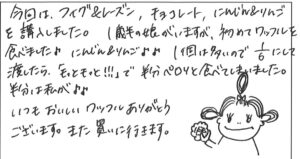 今回は、フィグ&レーズン、チョコレート、にんじん&りんご
を購入しました。1歳半の娘がいますが、初めてワッフルを
食べました♪ にんじん&りんご♪♪ 1個は多いので 1/6 にして
渡したら、「もっともっと!!!」で 半分ペロリと食べてしまいました。
半分は私が♪♪
いつもおいしいワッフルありがとう
ございます。また買いに行きます。